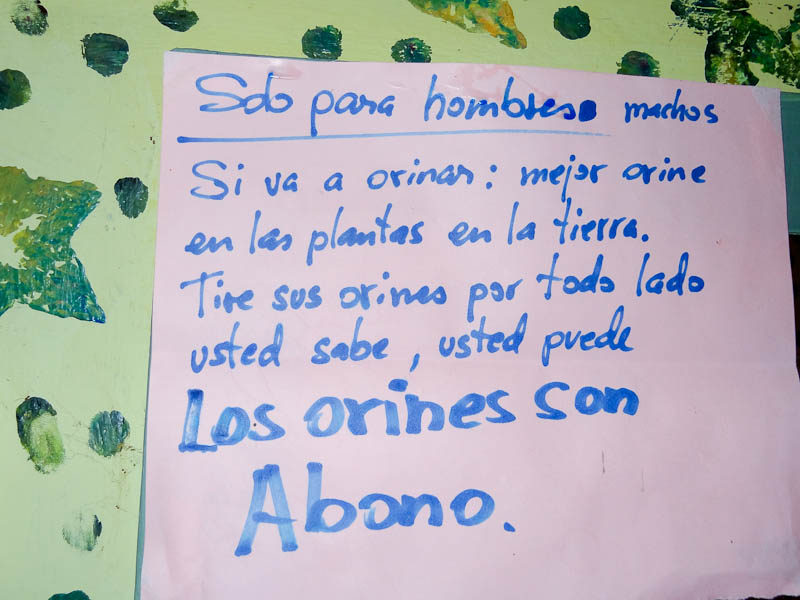 Solo para hombres machos
Si va a orinar: mejor orine
en las plantas en la tierra.
Tire sus orines por todo lado
usted sabe, usted puede
Los orines son
Abono.